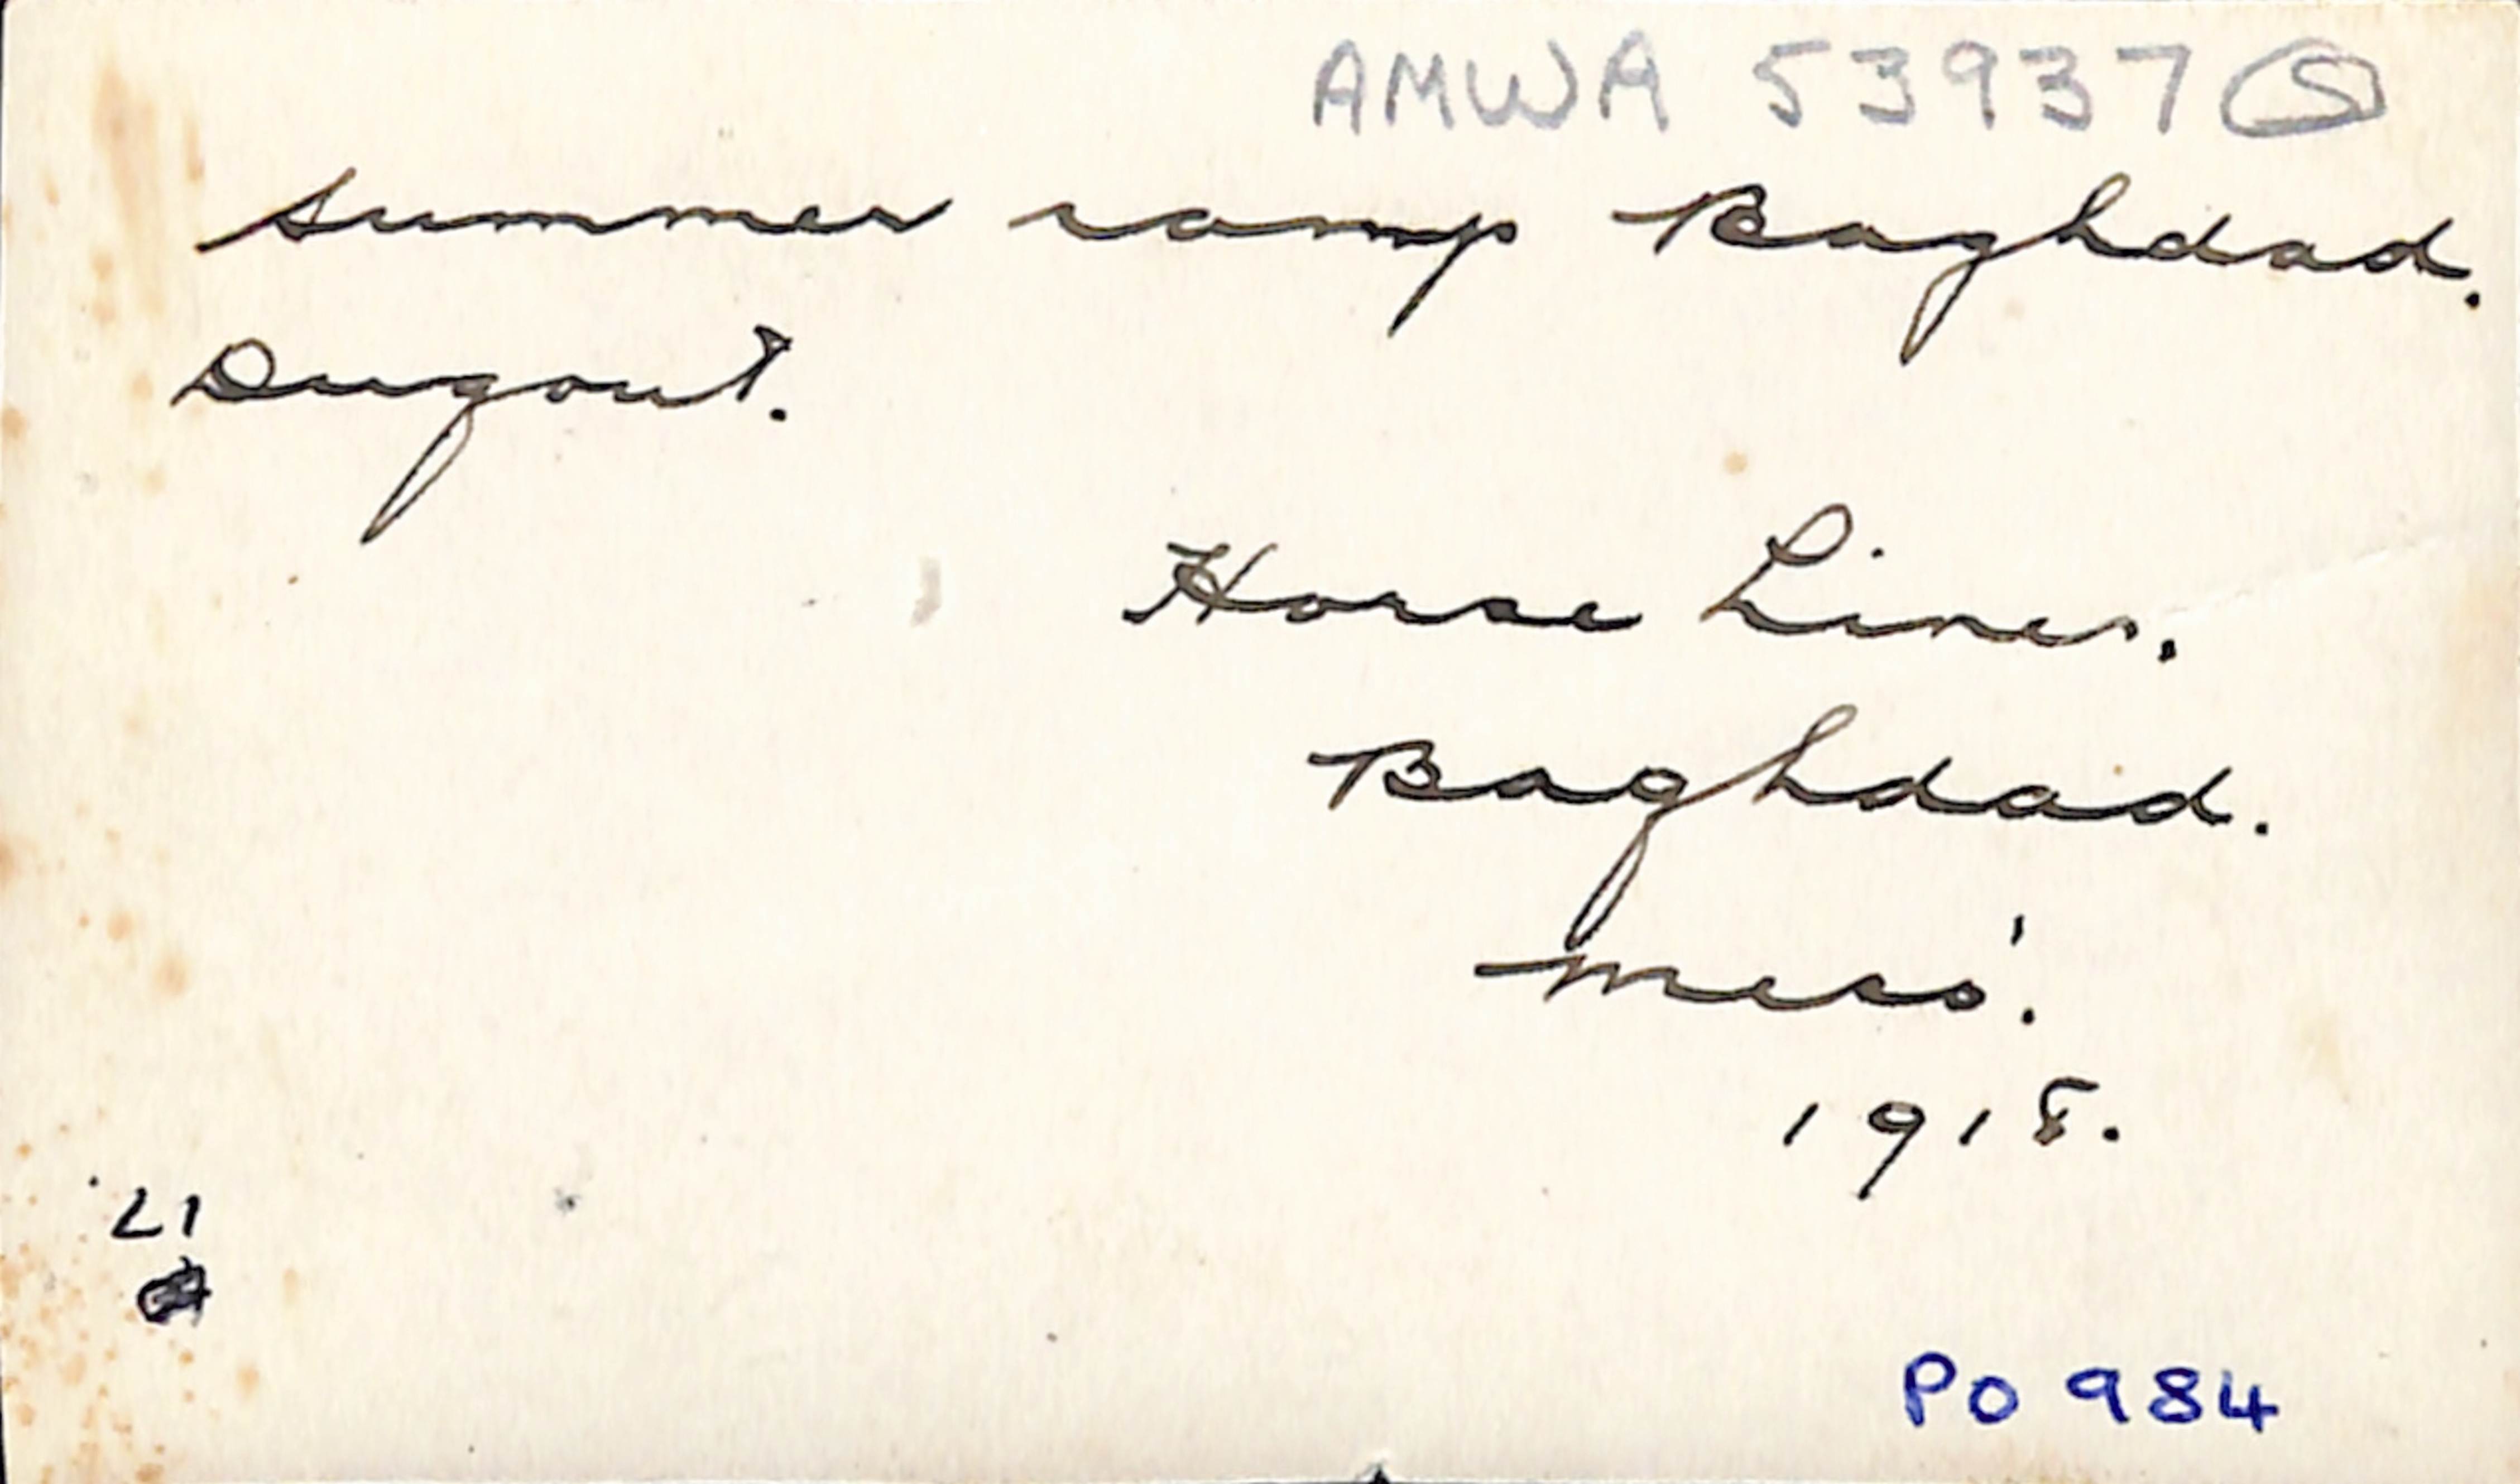 AMWA 53937 S
Summer camp Baghdad.
Dugout.
Horse Lines.
Baghdad.
Meso'.
1918.
L1
PO 984